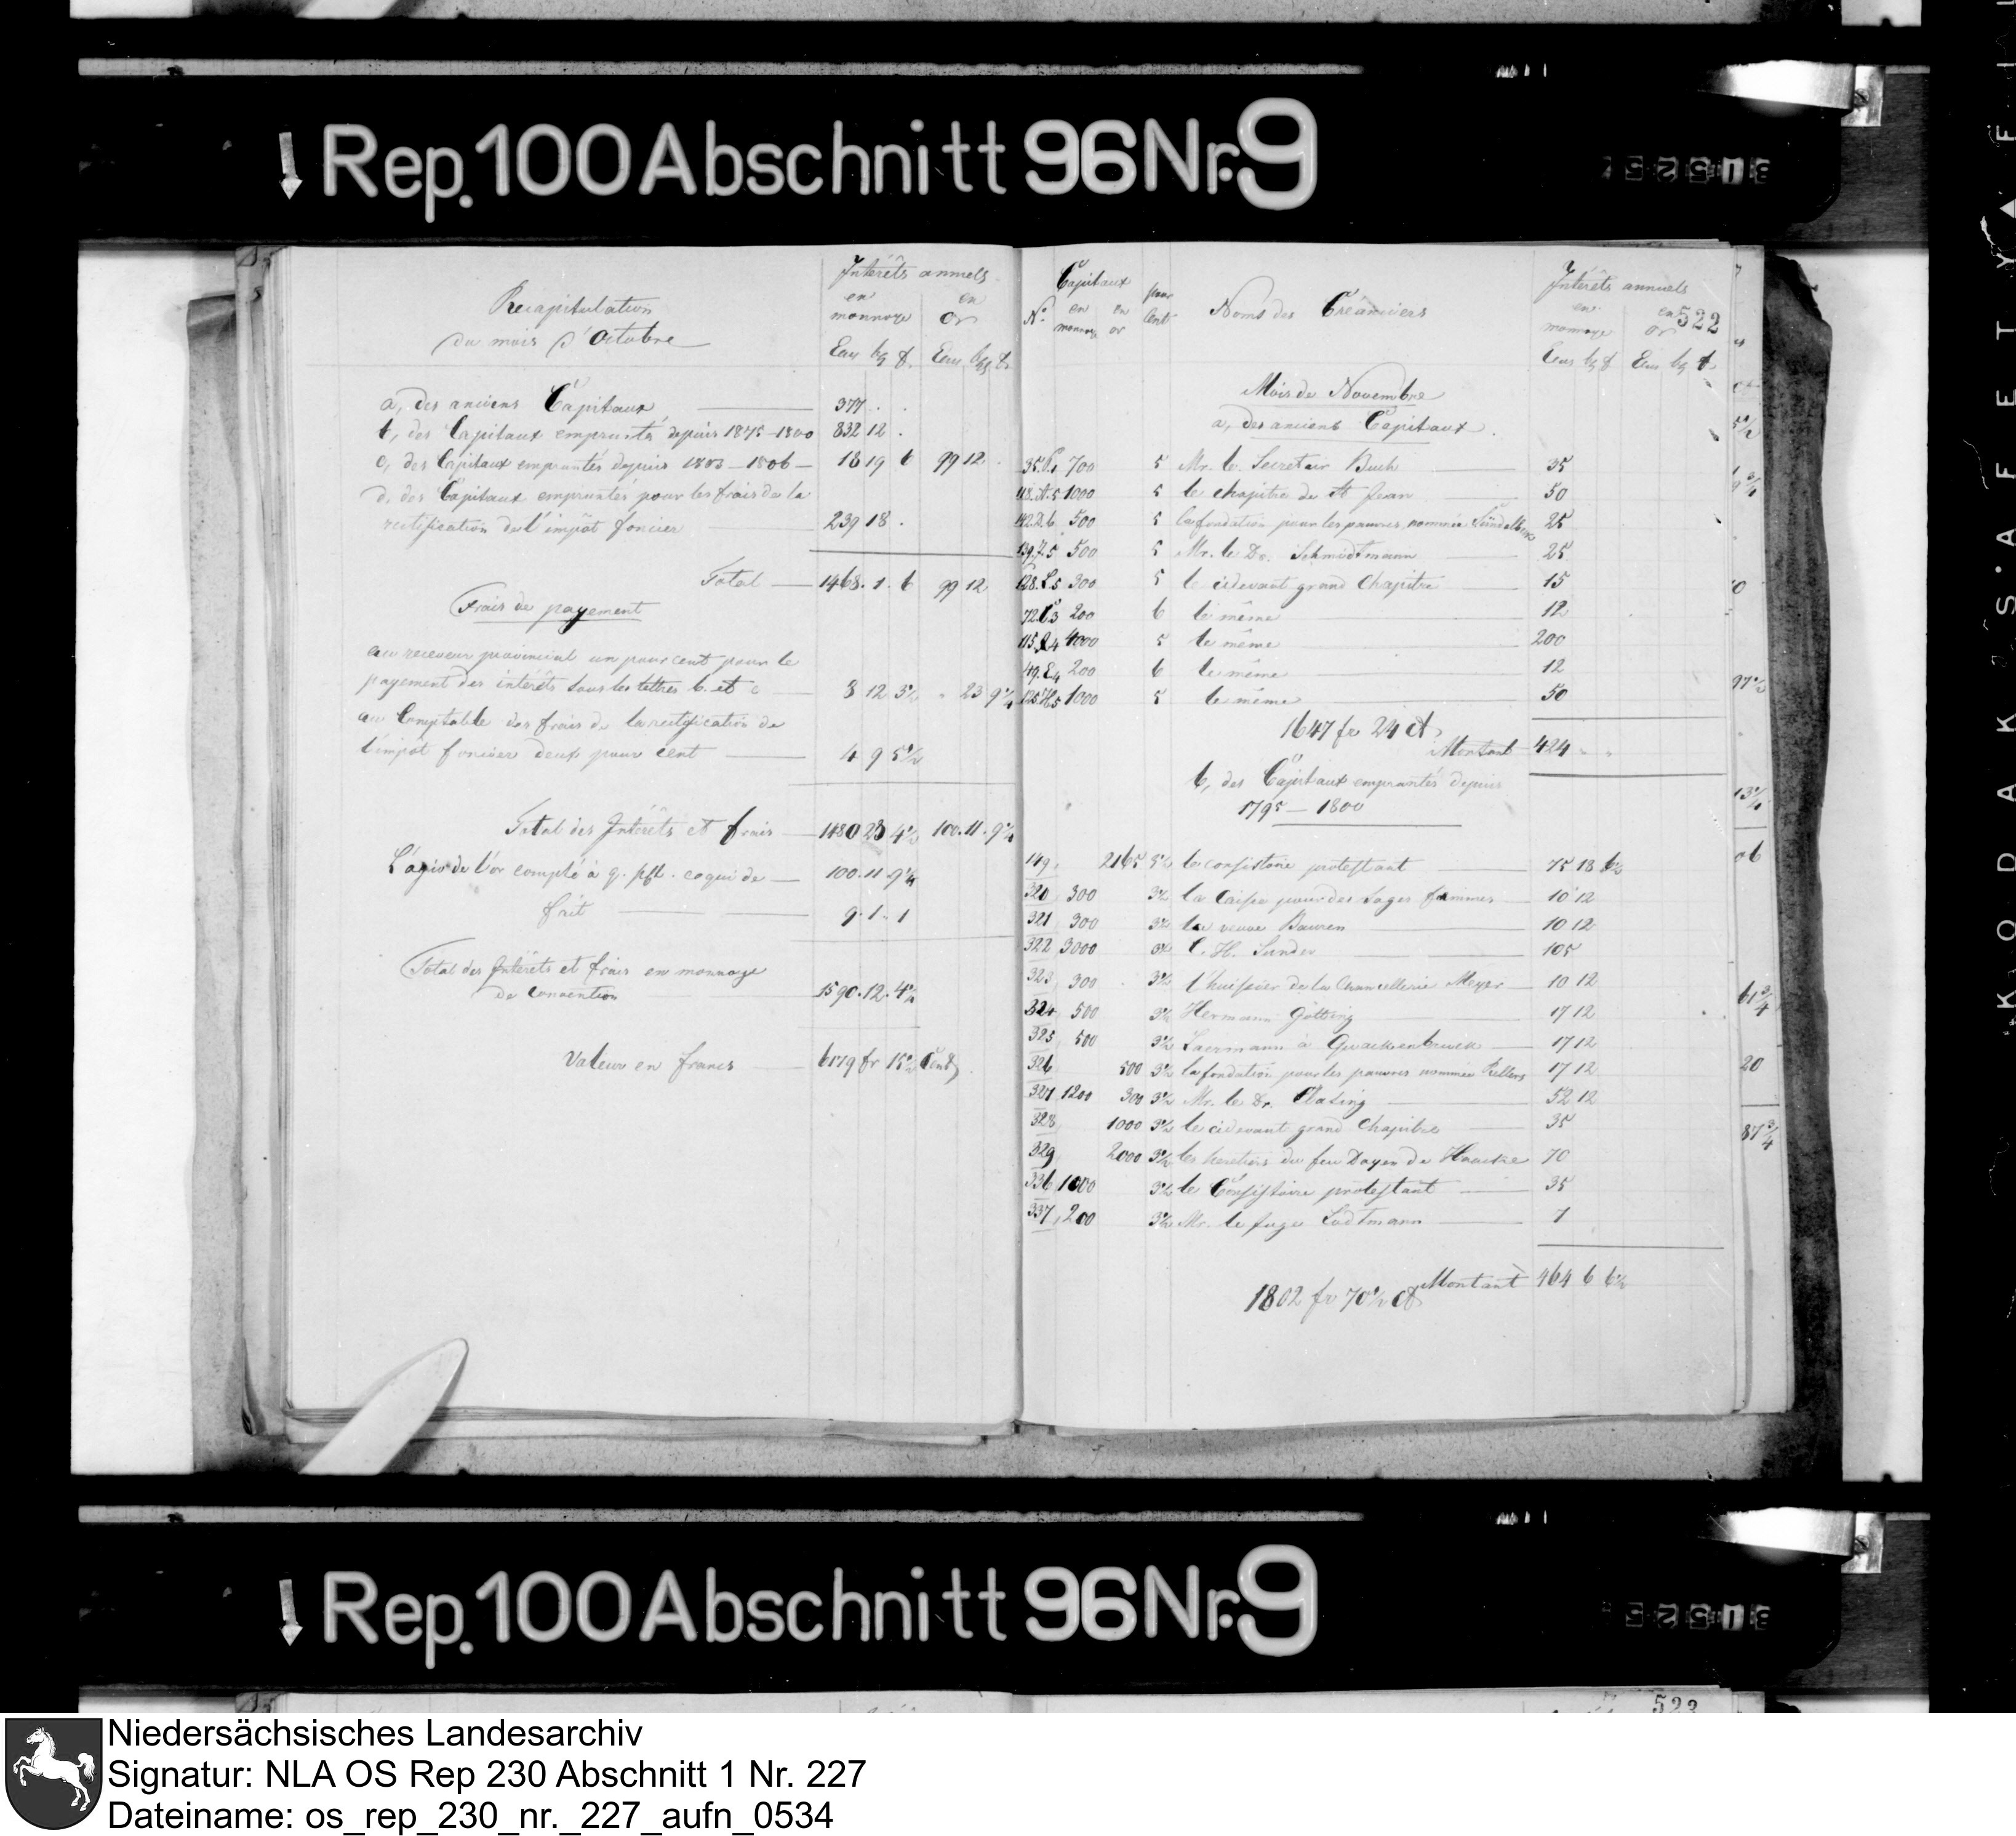 Rep. 100 Abschnitt 96 Nr. 9
31525
Intérêts annuels
en monnoye
en or
Recapitulation
du mois d'Octobre
Ecus bg d. Ecus bg d.
a, des anciens Capitaux 377 . .
b, des Capitaux empruntés depuis 1875-1800 832 12 .
c, des Capitaux empruntés depuis 1803-1806 18 19 6 99 12 .
d, des Capitaux empruntés pour les frais de la
rectification de l'impôt foncier 239 18 .
Total 1468. 1. 6 99 12
Frais de payement
au receveur provincial un pour cent pour le
payement des intérêts sous les lettres b. et c 8 12 3½ . 23 9¼
au Comptable des frais de la rectification de
l'impôt foncier deux pour cent 4 9 5½
Total des Intérêts et frais 1480 23 4½ 100. 11. 9¼
L'agio de l'or compté à 9. pft. ce qui de 100. 11. 9¼
fait 9. 1. 1
Total des Intérêts et frais en monnoye
de convention 1590. 12. 4¼
Valeur en francs 6179 fr 15½ Cent
522
Capitaux
Intérêts annuels
No. en monnoye en or pour Cent Noms des Créanciers en monnoye en or
Ecus bg d Ecus bg d
Mois de Novembre
a, des anciens Capitaux
700 5 Mr. le Secretair Buch 35
1000 5 le chapitre de St Jean 50
500 5 la fondation pour les pauvres, nommée 25
500 5 Mr. le Dr. Schmidtmann 25
300 5 le cidevant grand Chapitre 15
200 6 le même 12
4000 5 le même 200
200 6 le même 12
1000 5 le même 50
1647 fr 24 ct
Montant 424 . .
b, des Capitaux empruntés depuis
1795 - 1800
149, 2165 3½ le consistoire protestant 75 18 6½
320, 300 3½ la Caisse pour des Sages femmes 10 12
321, 300 3½ la veuve Bauren 10 12
322, 3000 3½ C. H. Sander 105
323, 300 3½ l'huissier de la Chancellerie Meyer 10 12
324, 500 3½ Hermann Götting 17 12
325, 500 3½ à Quackenbruck 17 12
326 500 3½ la fondation pour les pauvres nommée 17 12
327, 1200 300 3½ Mr. le Dr. Klasing 52 12
328 1000 3½ le cidevant grand Chapitre 35
329, 2000 3½ les heretiers du feu Doyen de Haacke 70
336, 1000 3½ le Consistoire protestant 35
337, 200 3½ Mr. le Juge Lodtmann 7
Montant 464 6 6½
1802 fr 70½ ct
Rep. 100 Abschnitt 96 Nr. 9
31525
523
KODAK SAFETY
Niedersächsisches Landesarchiv
Signatur: NLA OS Rep 230 Abschnitt 1 Nr. 227
Dateiname: os_rep_230_nr._227_aufn_0534